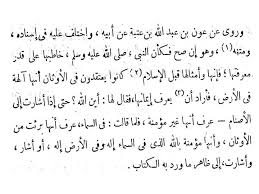 وروى عن عون بن عبد الله بن عتبة عن أبيه ، واختلف عليه فى إسناده ،
ومتنه (١) ، وهو إن صح فكأن النبى ، صلى الله عليه وسلم ، خاطبها على قدر
معرفتها ؛ فإنها وأمثالها قبل الإسلام (٢) كانوا يعتقدون فى الأوثان أنها آلهة
فى الأرض ، فأراد أن (٣) يعرف إيمانها ، فقال لها : أين الله ؟ حتى إذا أشارت إلى
الأصنام – عرف أنها غير مؤمنة ، فلما قالت : فى السماء ، عرف أنها برئت من
الأوثان ، وأنها مؤمنة بالله الذى فى السماء إله وفى الأرض إله ، أو أشار ،
وأشارت ، إلى ظاهر ما ورد به الكتاب .